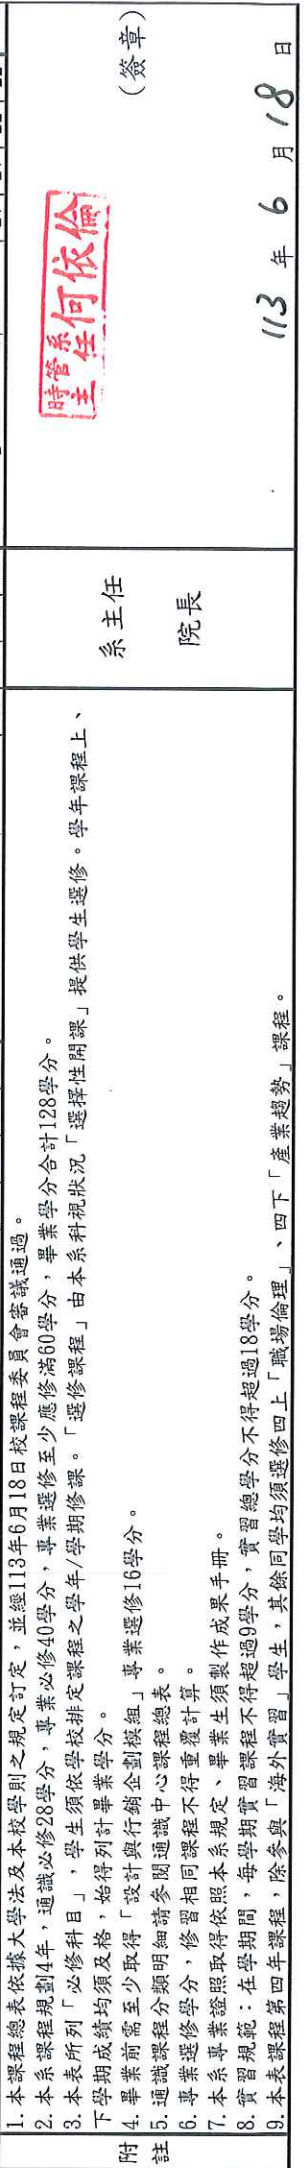 附註
1. 本課程總表依據大學法及本校學則之規定訂定，並經113年6月18日校課程委員會審議通過。
2. 本系課程規劃4年，通識必修28學分，專業必修40學分，專業選修至少應修滿60學分，畢業學分合計128學分。
3. 本表所列「必修科目」，學生須依學校排定課程之學年/學期修課。「選修課程」由本系科視狀況「選擇性開課」提供學生選修。學年課程上、
下學期成績均須及格，始得列計畢業學分。
4. 畢業前需至少取得「設計與行銷企劃模組」專業選修16學分。
5. 通識課程分類明細請參閱通識中心課程總表。
6. 專業選修學分，修習相同課程不得重覆計算。
7. 本系專業證照取得依照本系規定、畢業生須製作成果手冊。
8. 實習規範：在學期間，每學期實習課程不得超過9學分，實習總學分不得超過18學分。
9. 本表課程第四年課程，除參與「海外實習」學生，其餘同學均須選修四上「職場倫理」、四下「產業趨勢」課程。
系主任
院長
時管系
主任
何依倫
(簽章)
113 年 6 月 18 日